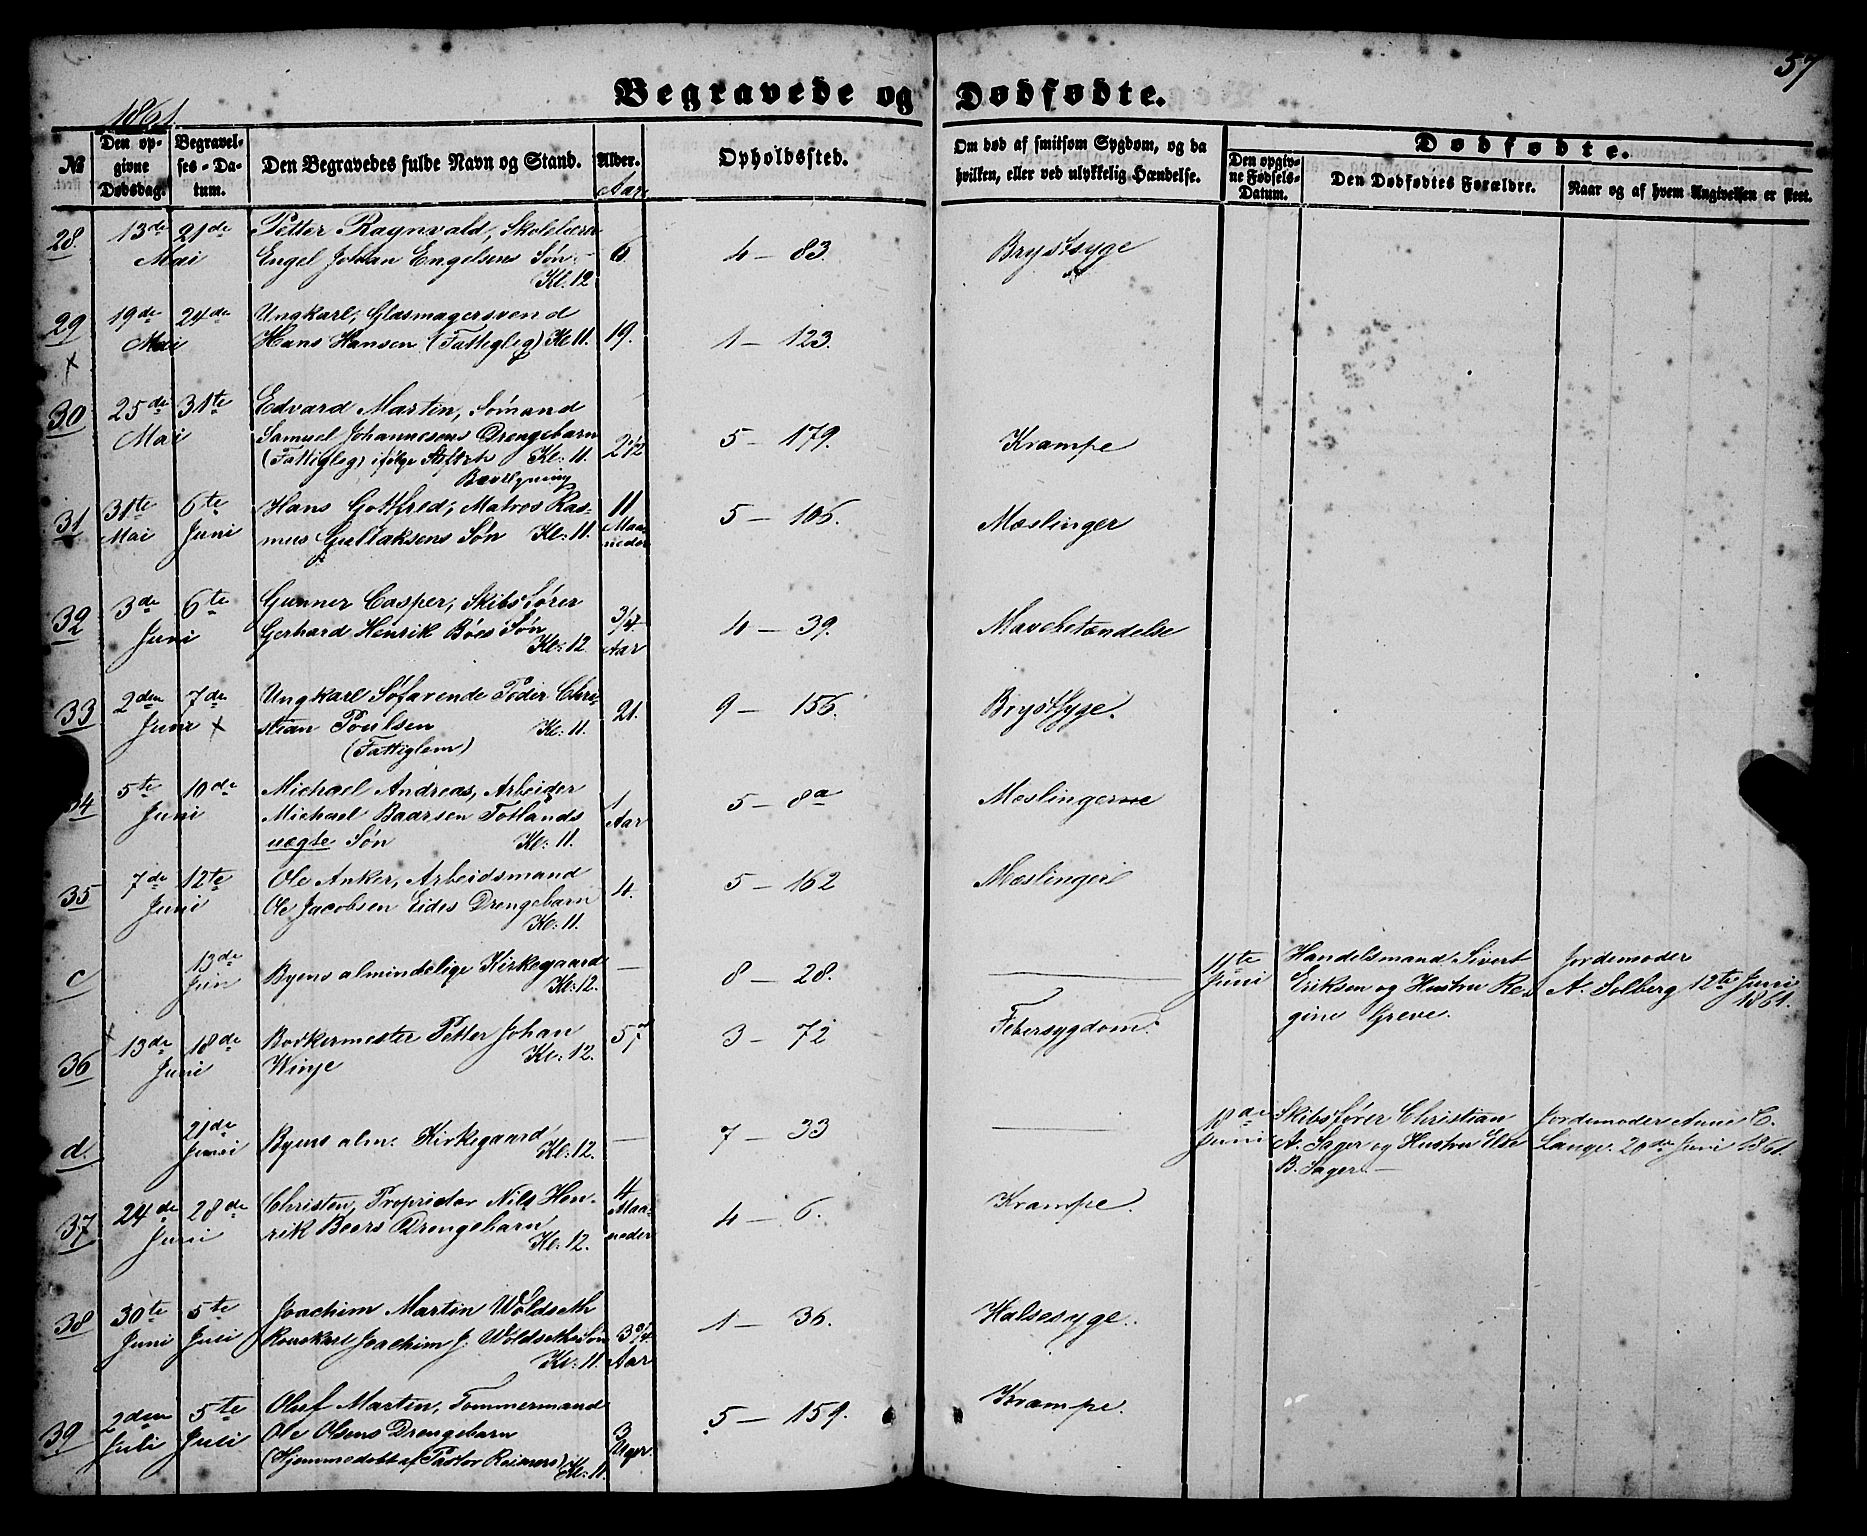 57
Begravede og Dødfødte.
1861.
№ Den opgivne Dødsdag. Begravelses-Datum. Den Begravedes fulde Navn og Stand. Alder. Aar. Opholdssted. Om død af smitsom Sygdom, og da hvilken, eller ved ulykkelig Hændelse. Dødfødte. Den opgivne Fødsels-Datum. Den Dødfødtes Forældre. Naar og af hvem Angivelsen er skeet.
28. 13de 21de Petter Ragnvald, Skolelærer
Mai Engel Johan Engelsens Søn. 6. 4 – 83. Brystsyge
Kl. 12
29 19de 24de Ungkarl, Glasmagersvend
Mai Hans Hansen (Fattiglig) Kl 11. 19. 1 – 123.
x
30 25de 31te Edvard Martin, Sømand
Mai Samuel Johannesens Drengebarn 2 1/2 5 – 179. Krampe
(Fattiglig) ifølge Kl: 11.
Bevilgning
31 31te 6te Hans Gottfred, Matros Ras- 11
Mai Juni mus Gullaksens Søn Kl: 11. Maaneder 5 – 106. Mæslinger
32 3de 6te Gunner Casper, Skibsfører 3/4
Juni Gerhard Henrik Bøes Søn Aar 4 – 39. Mavebetændelse
Kl: 12.
33 2den 7de Ungkarl Søfarende Peder Chri-
Juni x stian Poulsen Kl: 11. 21. 9 – 156. Brystsyge.
(Fattiglem)
34 5te 10de Michael Andreas, Arbeider 1
Juni Michael Baarsen Totlands Aar 5 – 8a Mæslingerne
uægte Søn Kl: 11.
35 7de 12te Ole Anker, Arbeidsmand
Juni Ole Jacobsen Eides Drengebarn 4. 5 – 162 Mæslinger
Kl: 11.
c 13de Juni Byens almindelige Kirkegaard — 8 – 28. — 11te Juni Handelsmand Sivert Jordemoder
Kl: 12. Eriksen og Hustru Re- A. Solberg 12te Juni
gine Greve. 1861.
x
36 13de 18de Bødkermester Petter Johan 57 3 – 72 Febersygdom.
Juni Winje Kl: 12.
d. 21de Juni Byens alm. Kirkegaard, — 7 – 33 — 18de Juni Skibsfører Christian Jordemoder Anne C.
Kl: 12. A. Sager og Hustru Else Lange. 20de Juni 1861.
B. Sager. —
37 24de 28de Christen, Proprietær Nils Hen- 4
Juni rik Beers Drengebarn Maaneder 4 – 6. Krampe.
Kl: 12.
38 30te 5te Joachim Martin Woldseth
Juni Juli Joachim J. Woldseths Søn 3 3/4 Aar 1 – 36. Halssyge.
Kl: 11.
39 2den 5te Oluf Martin, Tømmermand
Juli Juli Ole Olsens Drengebarn 3 Uger 5 – 159. Krampe.
(Hjemmedøbt af Pastor Reimers) Kl: 11.